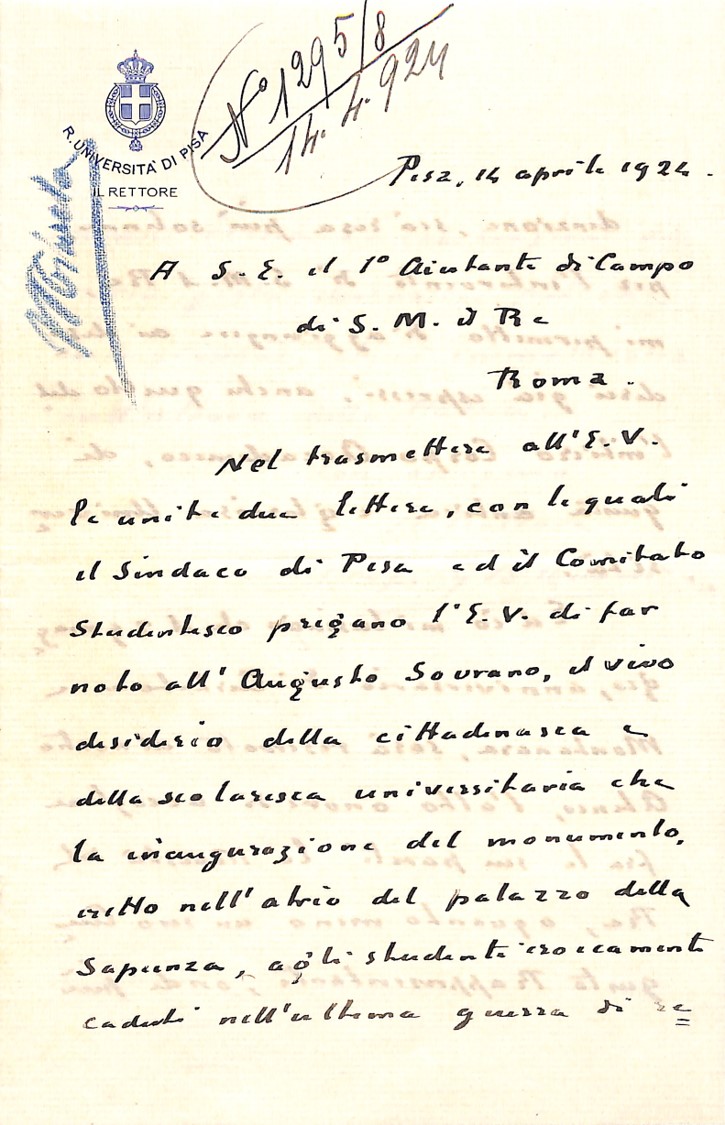 N° 1295/8
14.4.924
R. UNIVERSITÀ DI PISA
IL RETTORE
Pisa, 14 aprile 1924.
A S. E. il 1° Aiutante di Campo
di S. M. il Re
Roma.
Nel trasmettere all'E. V.
le unite due lettere, con le quali
il Sindaco di Pisa ed il Comitato
Studentesco pregano l'E. V. di far
noto all'Augusto Sovrano, il vivo
desiderio della cittadinanza e
della scolaresca universitaria che
la inaugurazione del monumento,
eretto nell'atrio del palazzo della
Sapienza, agli studenti eroicamente
caduti nell'ultima guerra di re=